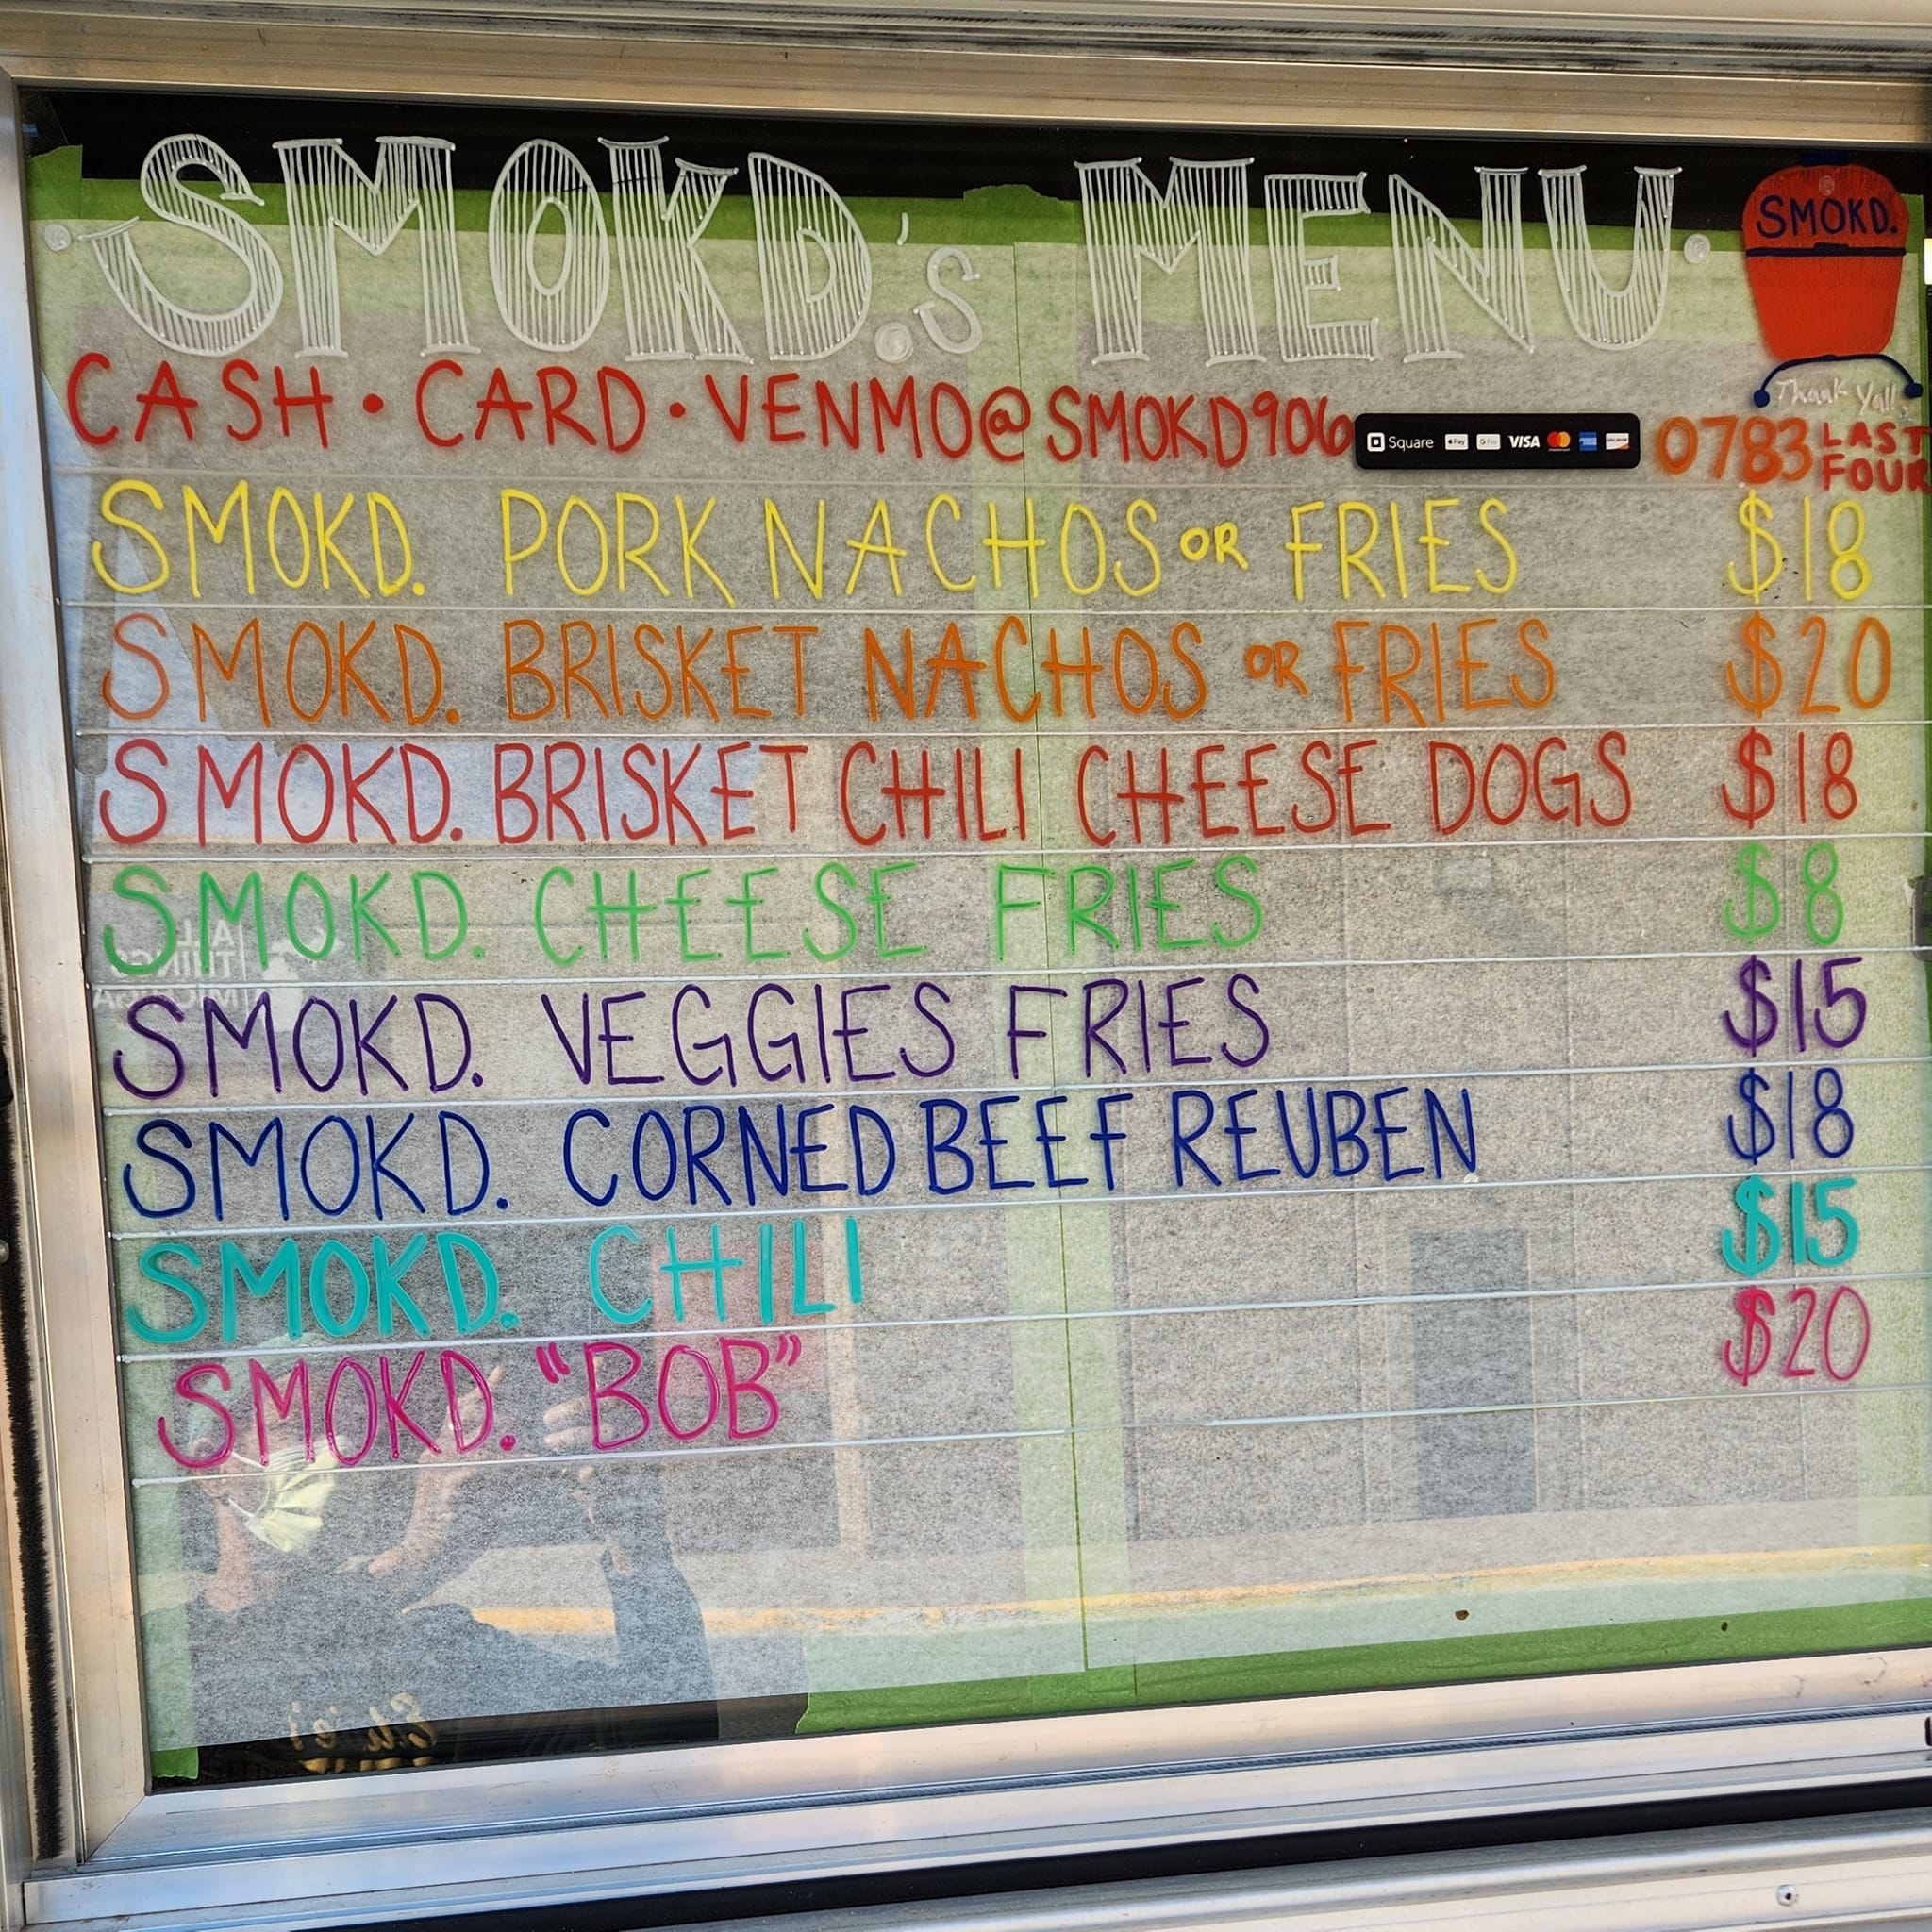 SMOKD.'s MENU
SMOKD.
Thank Yall.
CASH • CARD • VENMO@SMOKD906
Square Pay G Pay VISA
0783 LAST
FOUR
SMOKD. PORK NACHOS OR FRIES $18
SMOKD. BRISKET NACHOS OR FRIES $20
SMOKD. BRISKET CHILI CHEESE DOGS $18
SMOKD. CHEESE FRIES $8
SMOKD. VEGGIES FRIES $15
SMOKD. CORNED BEEF REUBEN $18
SMOKD. CHILI $15
SMOKD. "BOB" $20
ALL
THINGS